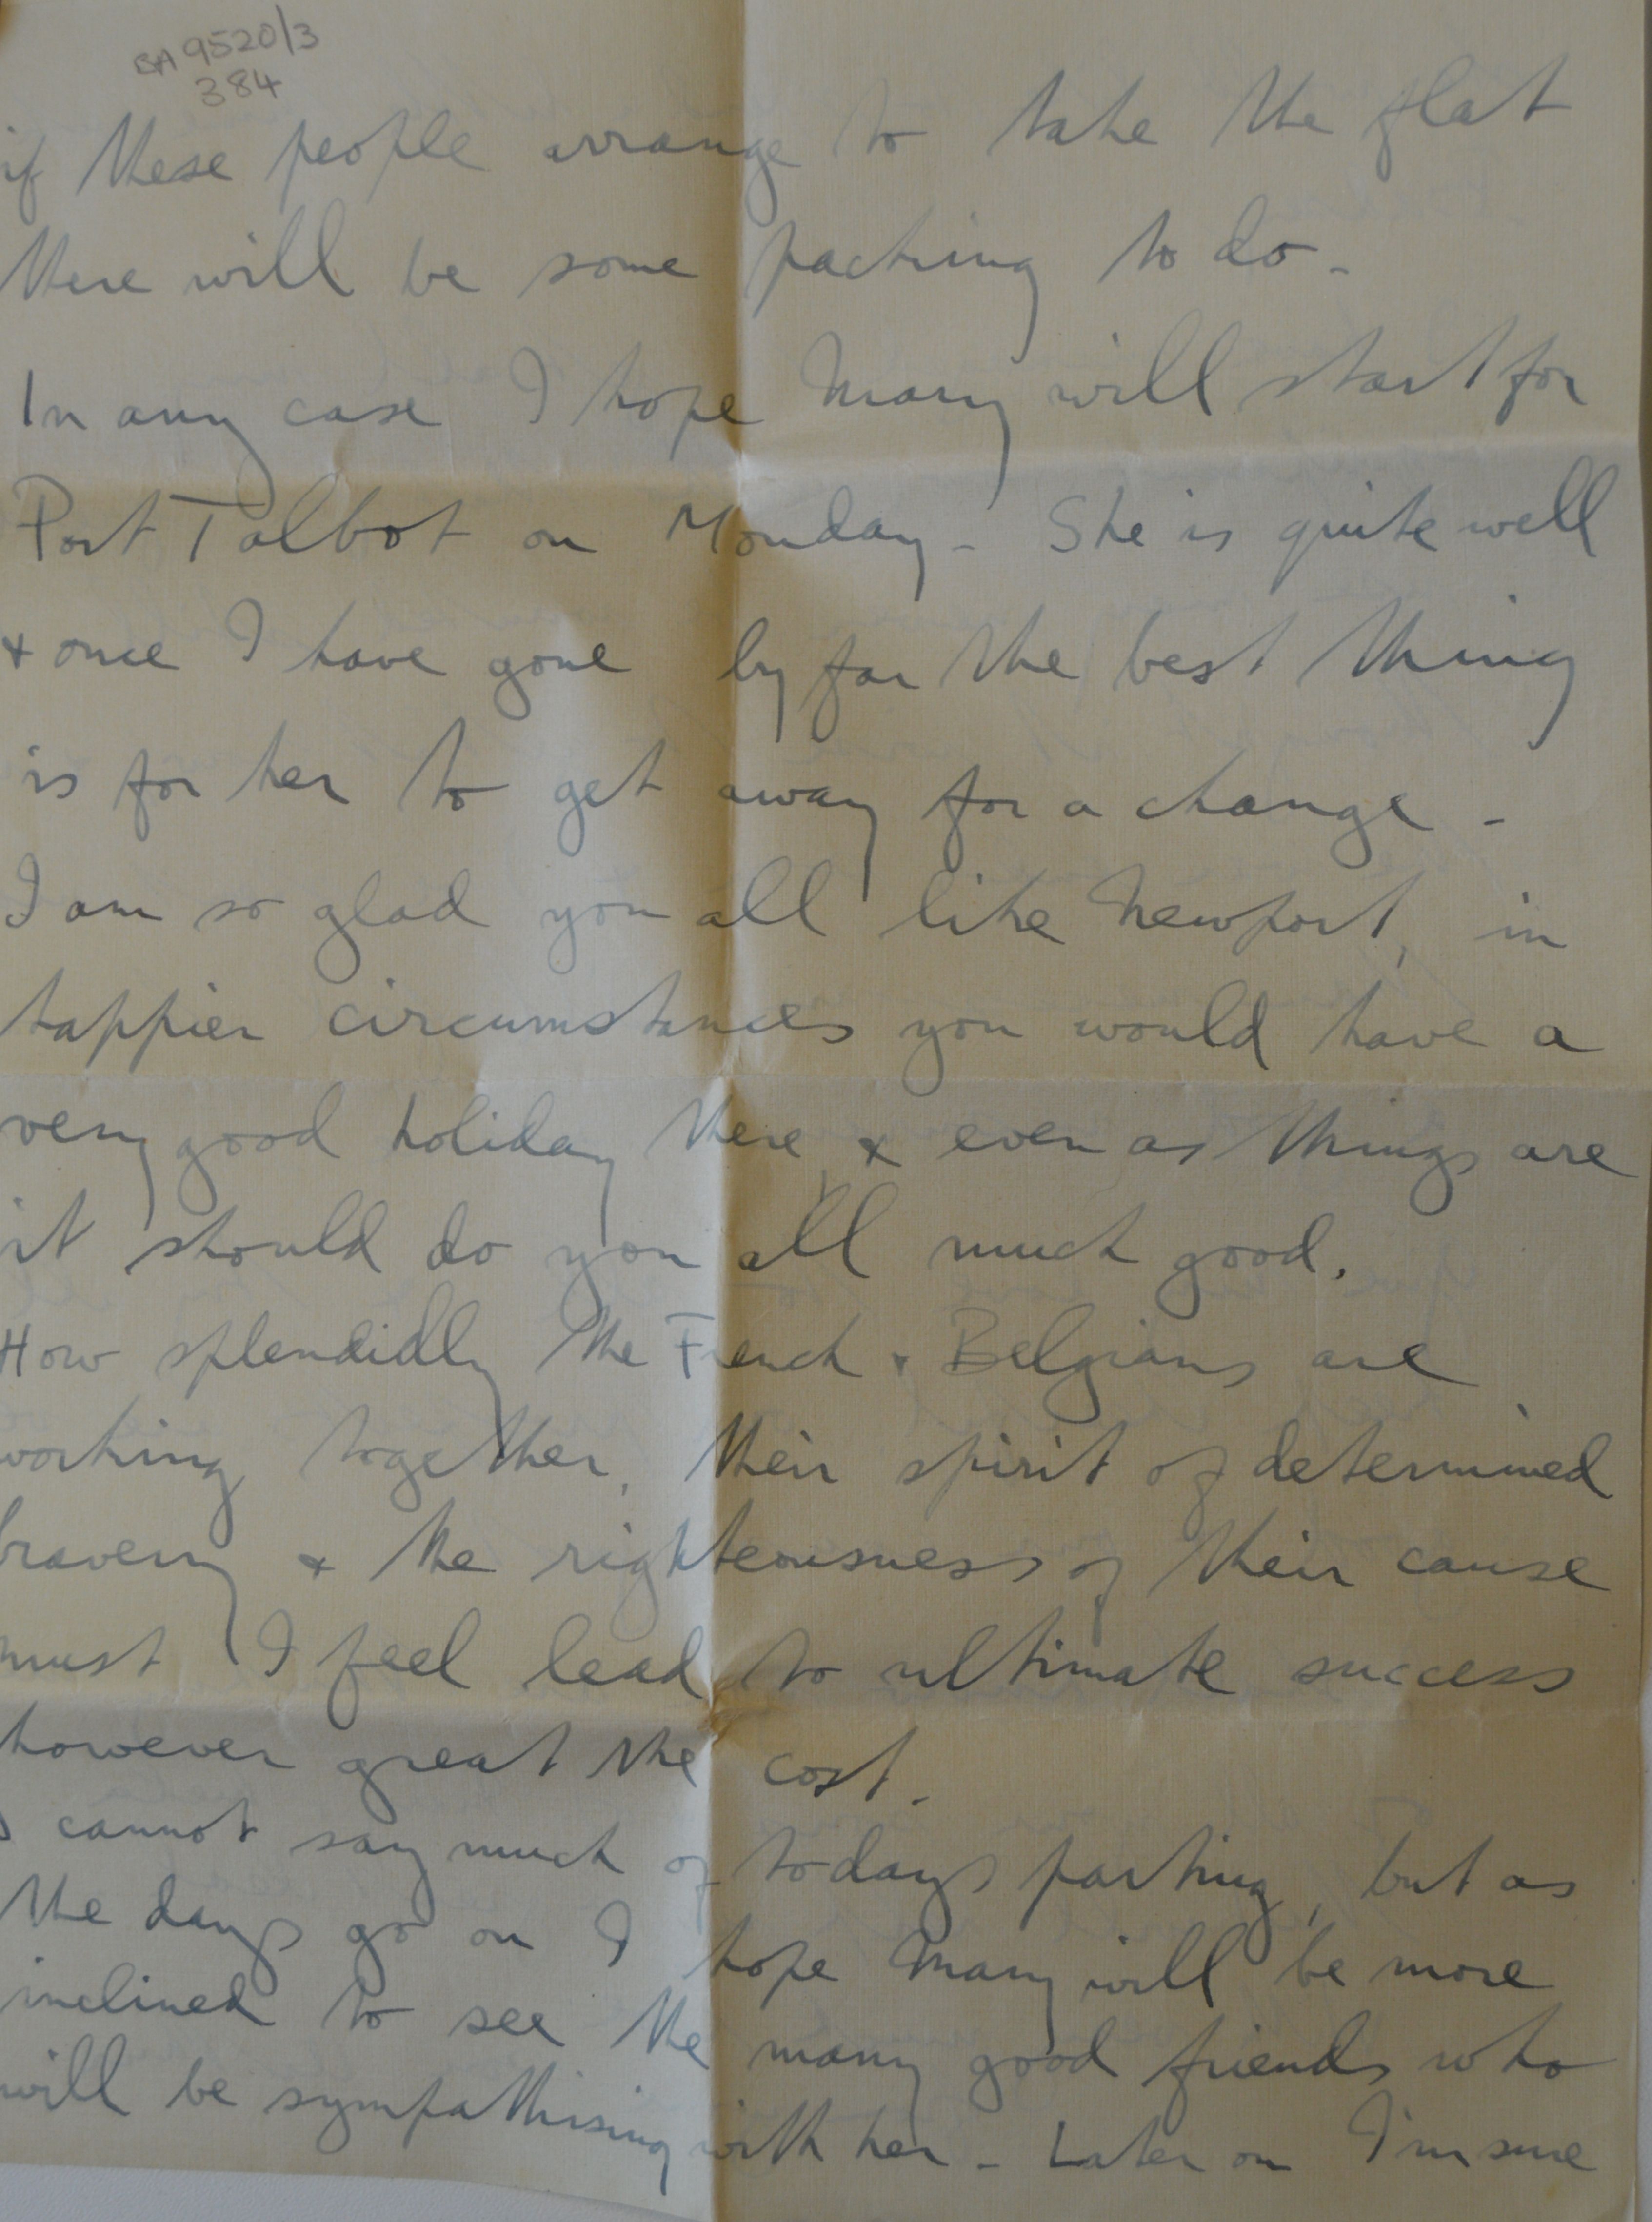 BA 9520/3
384
if these people arrange to take the flat
there will be some packing to do -
In any case I hope Mary will start for
Port Talbot on Monday - She is quite well
& once I have gone by far the best thing
is for her to get away for a change -
I am so glad you all like Newport, in
happier circumstances you would have a
very good holiday there, & even as things are
it should do you all much good.
How splendidly the French & Belgians are
working together, their spirit of determined
bravery & the righteousness of their cause
must I feel lead to ultimate success
however great the cost.
I cannot say much of todays parting, but as
the days go on I hope Mary will be more
inclined to see the many good friends who
will be sympathising with her - Later on I'm sure